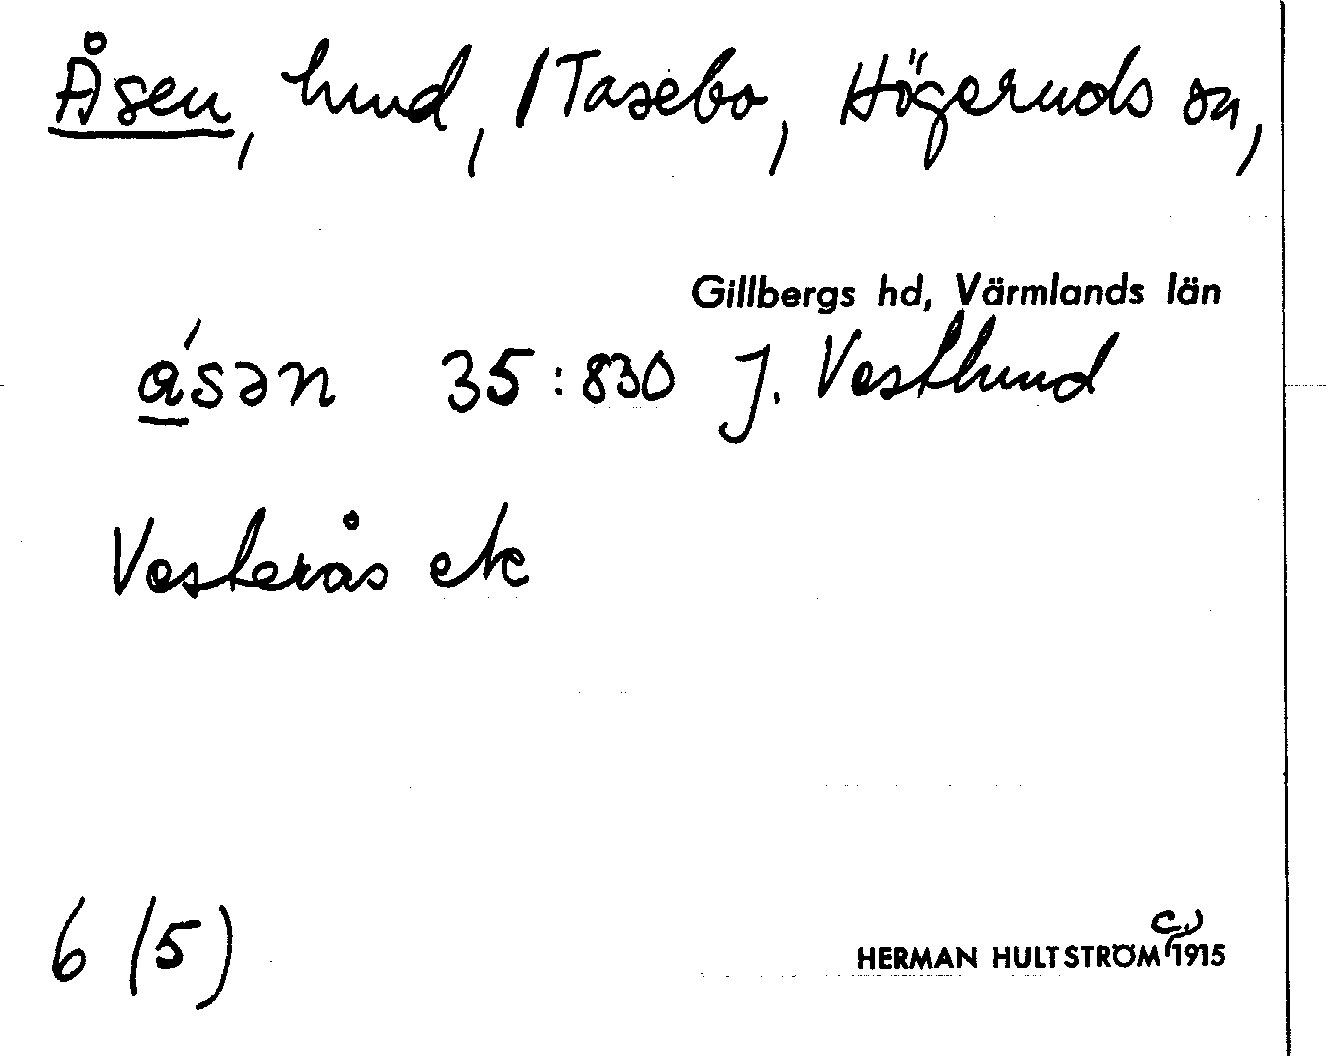 Åsen, hmd, /Tasebo, Högeruds sn,
Gillbergs hd, Värmlands län
a̲'sən 35:830 J. Vestlund
Vesterås etc
6 (5)
HERMAN HULTSTRÖM 1915